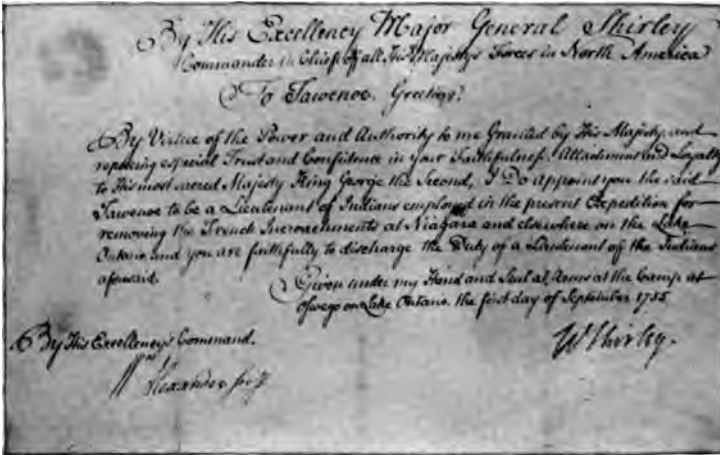 By His Excellency Major General Shirley
Commander in Chief of all His Majestys Forces in North America
To Tawenoe. Greeting!
By Virtue of the Power and Authority to me Granted by His Majesty, and
reposing especial Trust and Confidence in your Faithfulness, Attachment and Loyalty
to His most sacred Majesty King George the Second, I Do appoint you the said
Tawenoe to be a Lieutenant of Indians employed in the present Expedition for
removing the French Incroachments at Niagara and elsewhere on the Lake
Ontario and you are faithfully to discharge the Duty of a Lieutenant of the Indians
aforesaid.
Given under my Hand and Seal at Arms at the Camp at
Oswego on Lake Ontario the first day of September 1755
By His Excellency's Command.
W Shirley.
Wm Alexander Secy